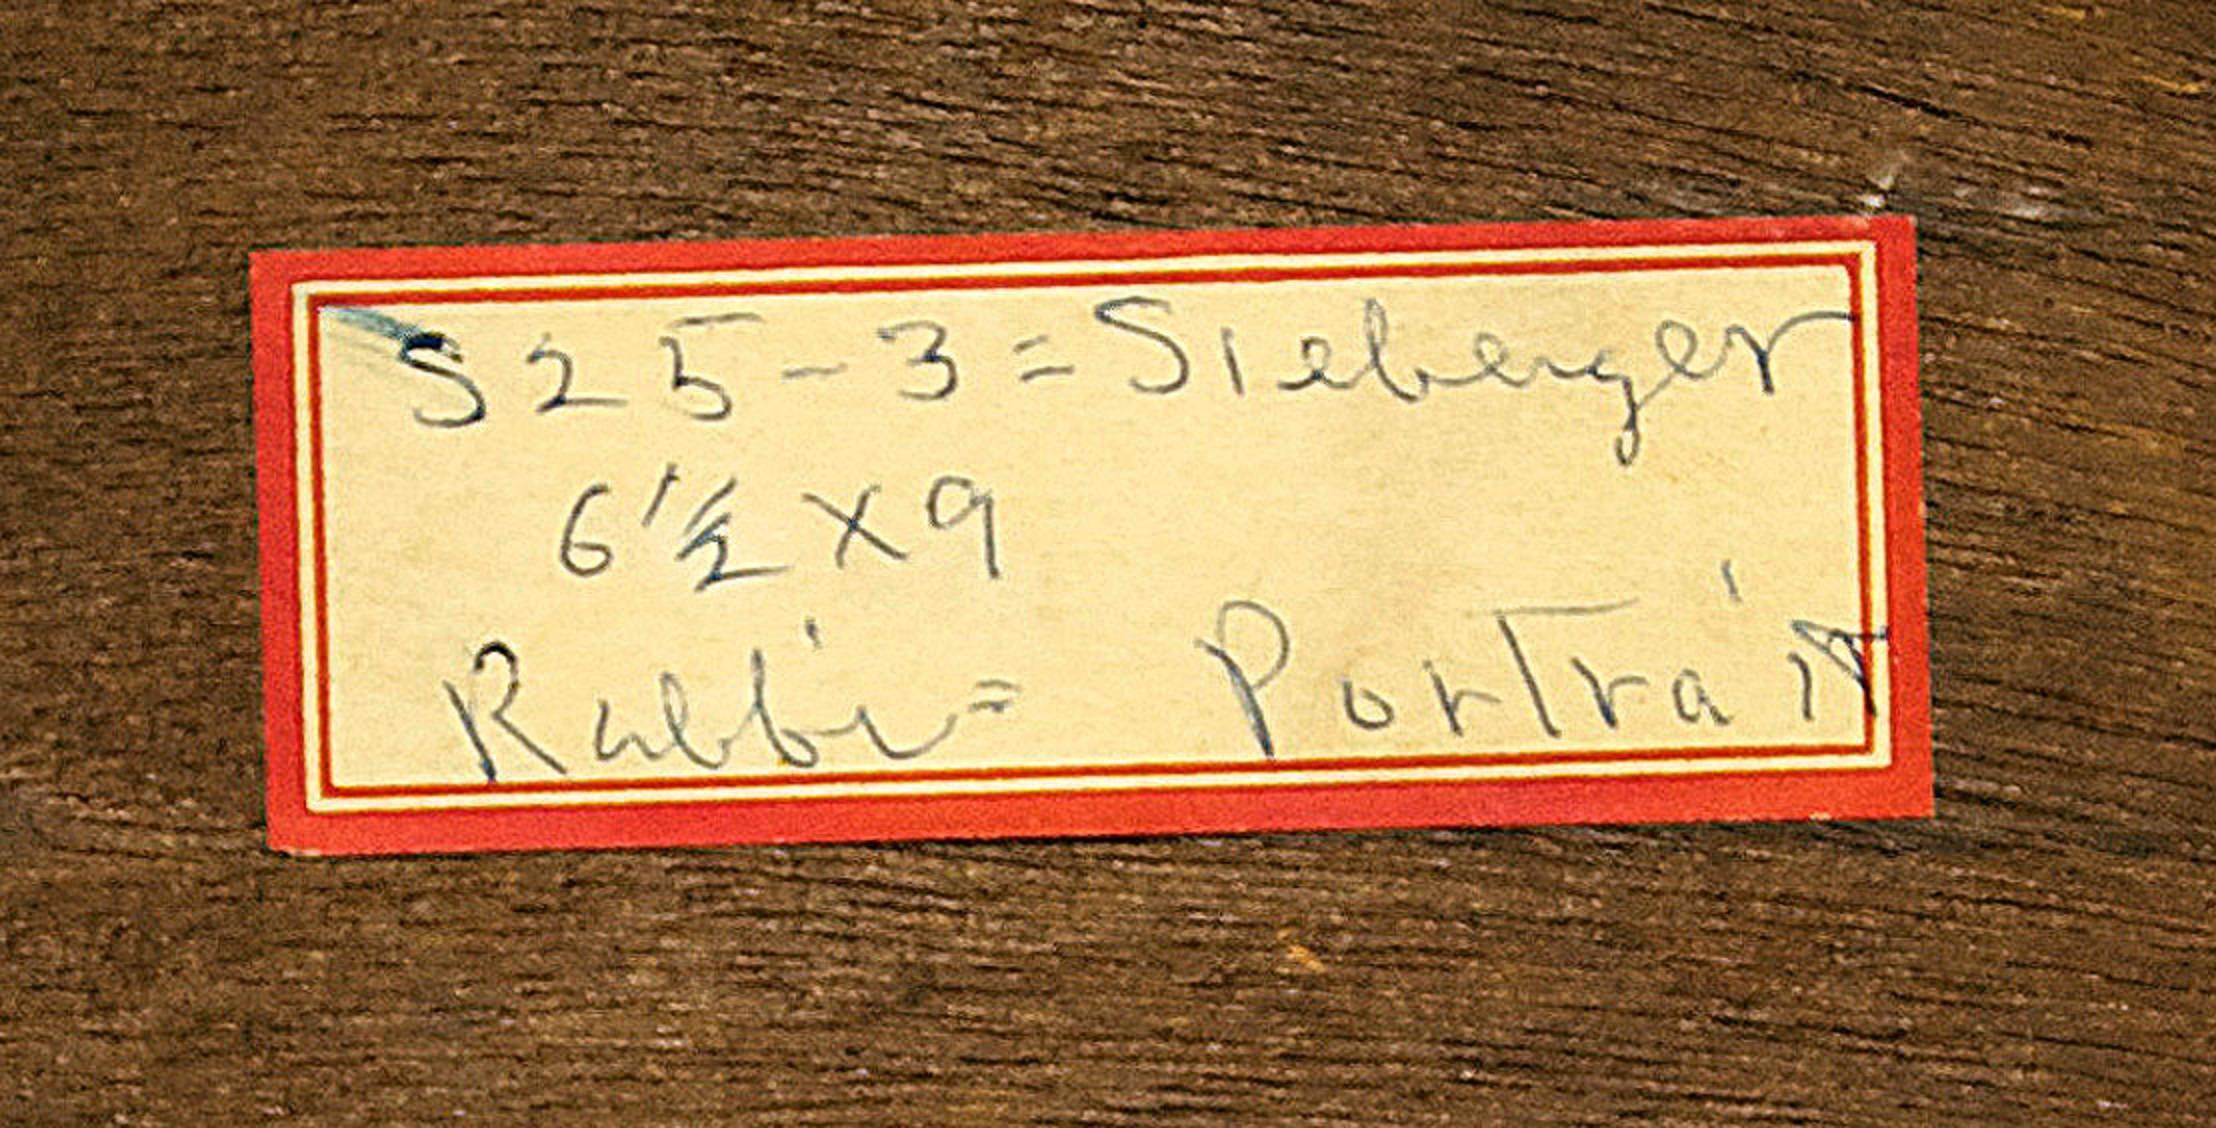 S25-3=Sieberger
6 1/2 X 9
Rabbi= Portrait